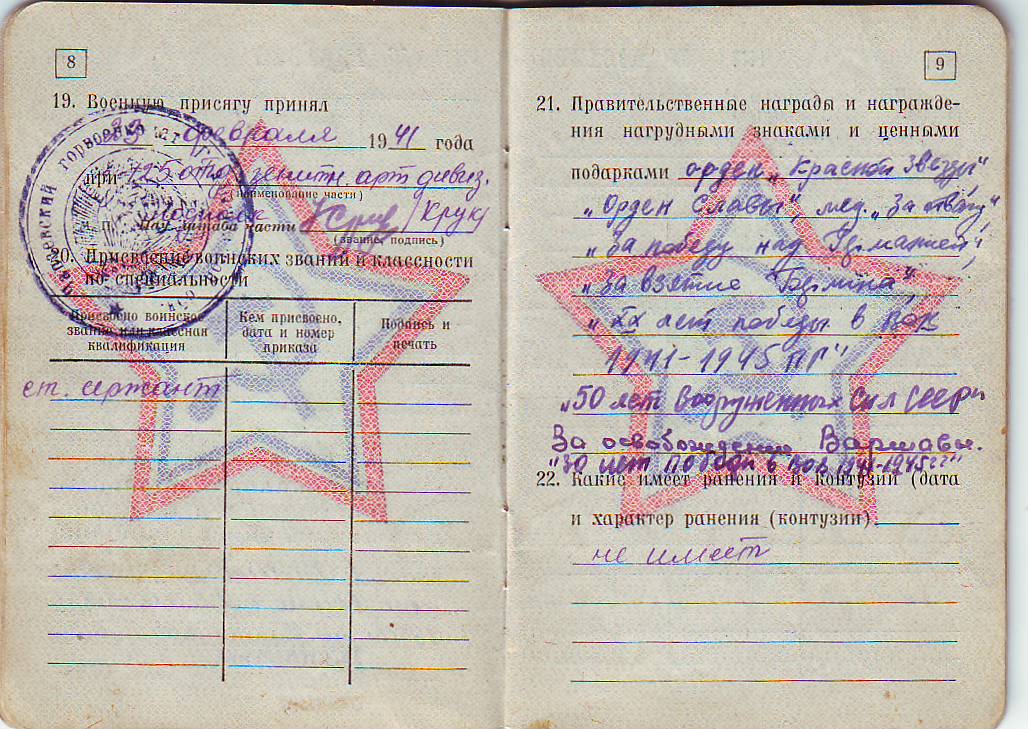 8
19. Военную присягу принял
23 февраля 1941 года
при 125 зенитн. арт. дивиз.
(наименование части)
Нач. штаба части /Крук/
(звание, подпись)
20. Присвоение воинских званий и классности
по специальности
Присвоено воинское
звание или классная
квалификация
Кем присвоено,
дата и номер
приказа
Подпись и
печать
ст. сержант
9
21. Правительственные награды и награжде-
ния нагрудными знаками и ценными
подарками орден „Красной Звезды"
„Орден Славы" мед. „За отвагу",
„За победу над Германией",
„За взятие Берлина",
„XX лет победы в ВОВ
1941-1945 гг"
„50 лет Вооруженных Сил СССР"
За освобождение Варшавы.
"30 лет победы в ВОВ 1941-1945гг"
22. Какие имеет ранения и контузии (дата
и характер ранения (контузии)
не имеет